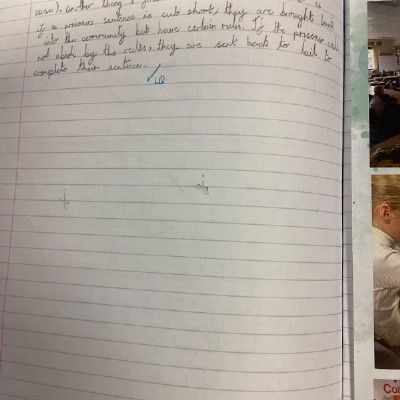 case). Another thing I is
if a prisoners sentence is cut short, they are brought back
into the community but have certain rules. If the prisoner will
not abide by the rules, they are sent back to jail to
complete their sentence.
Co